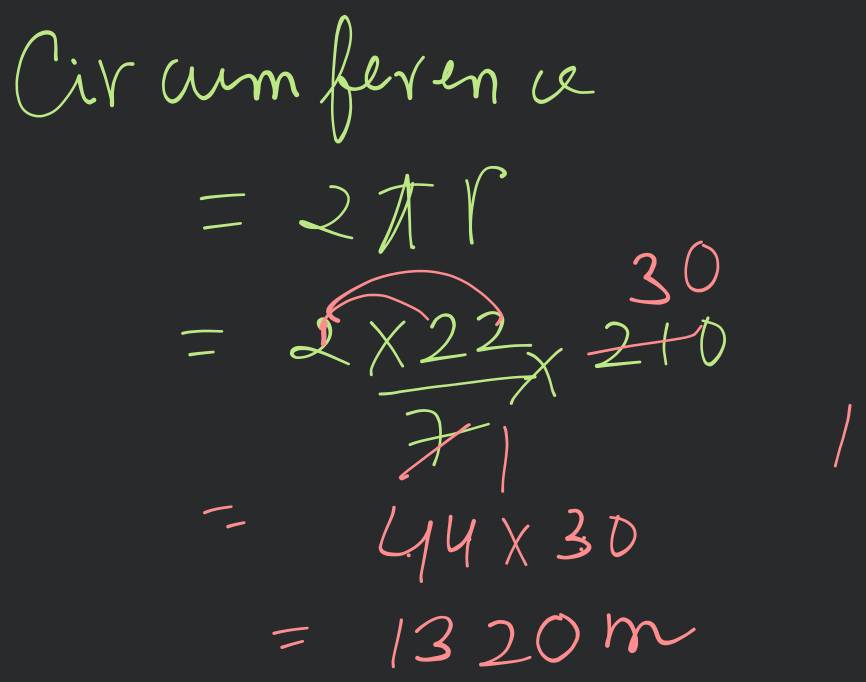 Circumference
= 2πr
30
= 2 × 22/7 × 210
1
1
= 44 × 30
= 1320 m